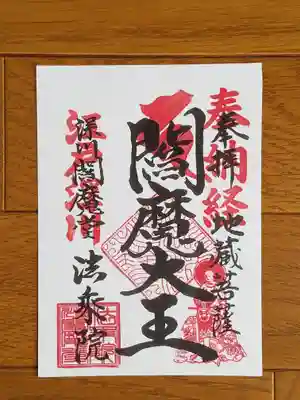 奉納経
奉拝 地蔵菩薩
閻魔大王
深川閻魔堂 法乗院